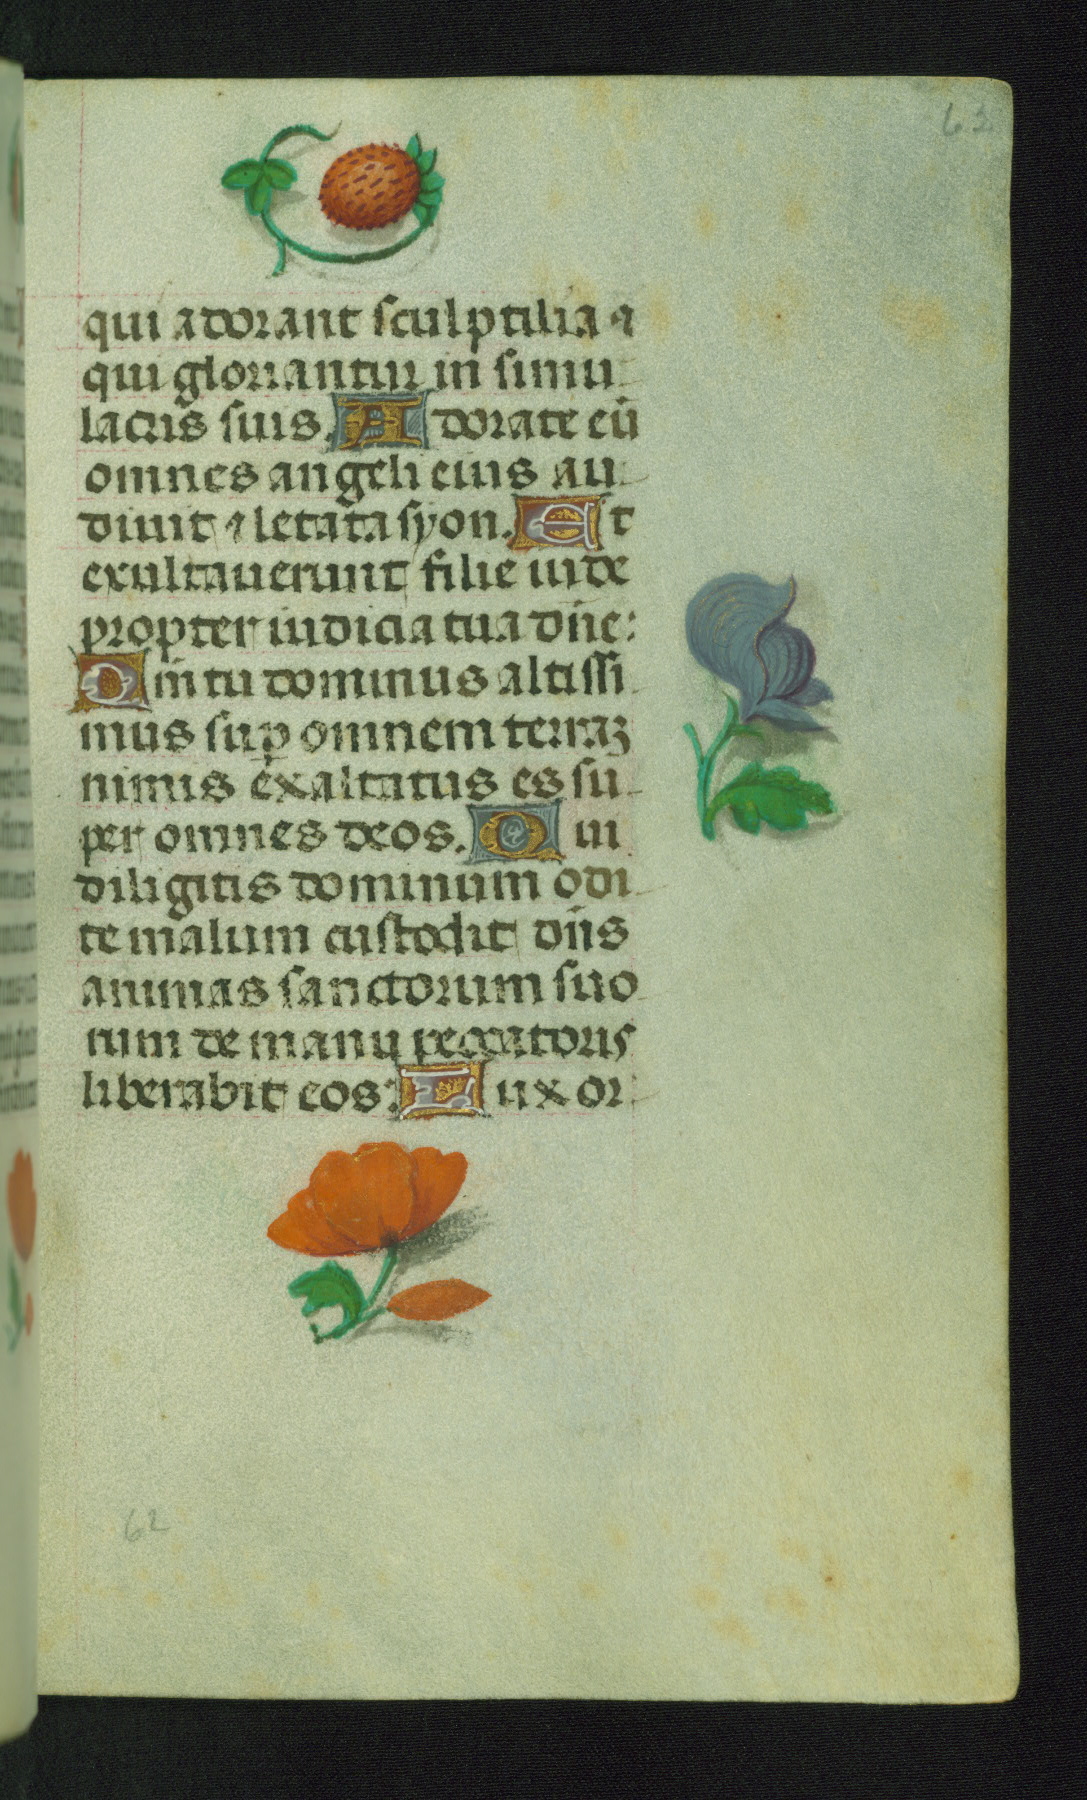 63
qui adorant sculptilia ⁊
qui gloriantur in simu
lacris suis. Adorate eū
omnes angeli eius au
diuit ⁊ letata syon. Et
exultauerunt filie iude
propter iudicia tua dñe:
Qm̄ tu dominus altissi
mus suꝑ omnem terraꝫ
nimis exaltatus es su
per omnes deos. Qui
diligitis dominum odi
te malum custodit dñs
animas sanctorum suo
rum de manu peccatoris
liberabit eos: Lux or
62